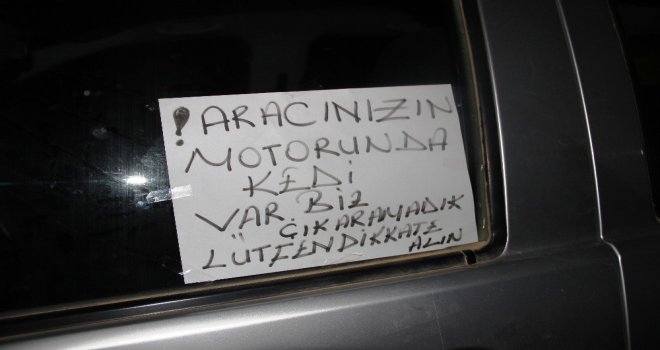 ! ARACINIZIN
MOTORUNDA
KEDİ
VAR. BİZ
ÇIKARAMADIK
LÜTFEN DİKKATE
ALIN